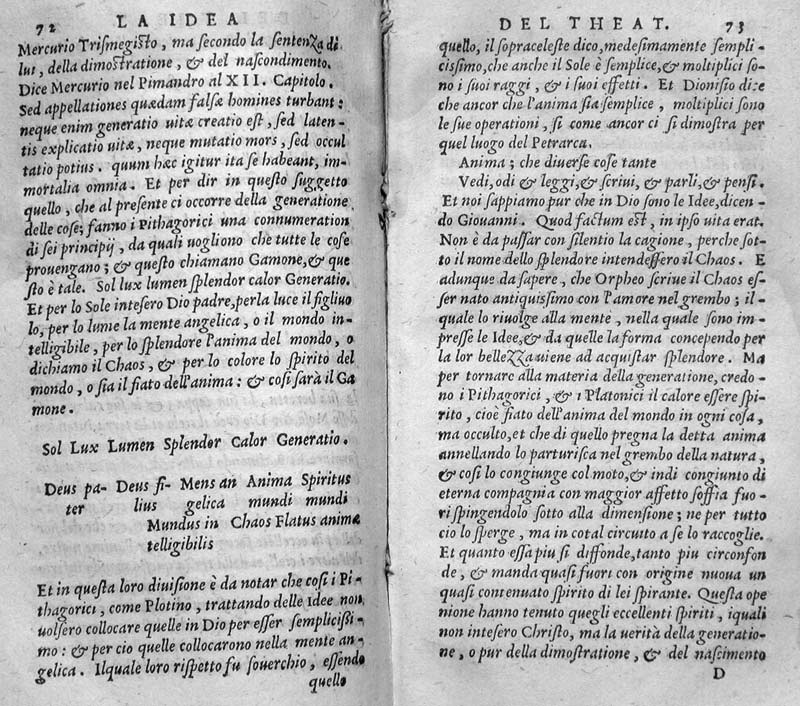 72 LA IDEA
Mercurio Triſmegiſto, ma secondo la sentenza di
lui, della dimoſtratione, & del naſcondimento.
Dice Mercurio nel Pimandro al XII. Capitolo.
Sed appellationes quædam falſæ homines turbant:
neque enim generatio uitæ creatio eſt, ſed laten-
tis explicatio uitæ, neque mutatio mors, ſed occul
tatio potius. quum hæc igitur ita ſe habeant, im-
mortalia omnia. Et per dir in queſto ſuggetto
quello, che al preſente ci occorre della generatione
delle coſe; fanno i Pithagorici una connumeration
di ſei principij, da quali uogliono che tutte le coſe
prouengano; & queſto chiamano Gamone, & que
ſto è tale. Sol lux lumen ſplendor calor Generatio.
Et per lo Sole inteſero Dio padre, per la luce il figliuo
lo, per lo lume la mente angelica, o il mondo in-
telligibile, per lo ſplendore l'anima del mondo, o
dichiamo il Chaos, & per lo colore lo ſpirito del
mondo, o ſia il fiato dell'anima: & coſi ſarà il Ga
mone.
Sol Lux Lumen Splendor Calor Generatio.
Deus pa- Deus fi- Mens an Anima Spiritus
ter lius gelica mundi mundi
Mundus in Chaos Flatus animæ
telligibilis
Et in queſta loro diuiſione è da notar che coſi i Pi-
thagorici, come Plotino, trattando delle Idee non
uolſero collocare quelle in Dio per eſſer ſempliciſſi-
mo: & per cio quelle collocarono nella mente an-
gelica. Ilquale loro riſpetto fu ſouerchio, eſſendo
quello
DEL THEAT. 73
quello, il ſopraceleſte dico, medeſimamente ſempli-
ciſſimo, che anche il Sole è ſemplice, & moltiplici ſo-
no i ſuoi raggi, & i ſuoi effetti. Et Dioniſio dice
che ancor che l'anima ſia ſemplice, moltiplici ſono
le ſue operationi, ſi come ancor ci ſi dimoſtra per
quel luogo del Petrarca.
Anima; che diuerſe coſe tante
Vedi, odi & leggi, & ſcriui, & parli, & penſi.
Et noi ſappiamo pur che in Dio ſono le Idee, dicen-
do Giouanni. Quod factum eſt, in ipſo uita erat.
Non è da paſſar con ſilentio la cagione, perche ſot-
to il nome dello ſplendore intendeſſero il Chaos. E
adunque da ſapere, che Orpheo ſcriue il Chaos eſ-
ſer nato antiquiſſimo con l'amore nel grembo; il-
quale lo riuolge alla mente, nella quale ſono im-
preſſe le Idee, & da quelle la forma concependo per
la lor bellezza uiene ad acquiſtar ſplendore. Ma
per tornare alla materia della generatione, credo-
no i Pithagorici, & i Platonici il calore eſſere ſpi-
rito, cioè fiato dell'anima del mondo in ogni coſa,
ma occulto, et che di quello pregna la detta anima
annellando lo parturiſca nel grembo della natura,
& coſi lo congiunge col moto, & indi congiunto di
eterna compagnia con maggior affetto ſoffia fuo-
ri ſpingendolo ſotto alla dimenſione; ne per tutto
cio lo ſperge, ma in cotal circuito a ſe lo raccoglie.
Et quanto eſſa piu ſi diffonde, tanto piu circonfon
de, & manda quaſi fuori con origine nuoua un
quaſi contenuato ſpirito di lei ſpirante. Queſta ope
nione hanno tenuto quegli eccellenti ſpiriti, iquali
non inteſero Chriſto, ma la uerità della generatio-
ne, o pur della dimoſtratione, & del naſcimento
D